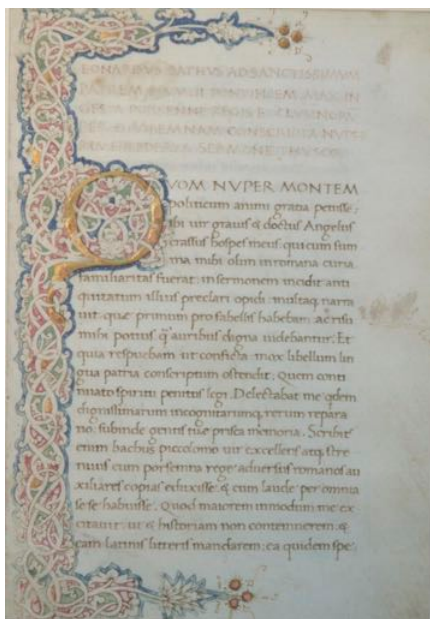 VOM NVPER MONTEM
politicum animi gratia petissē:
ibi uir grauis & doctus Angelus
crassus hospes meus qui cum sum
ma mihi olim in romana curia
familiaritas fuerat: in sermonem incidit anti
quitatum illius preclari opidi: multaq; narra
uit: que primum pro fabellis habebam: ac risu
mihi potius q̄ auribus digna uidebantur. Et
quia respuebam ut conficta: mox libellum lin
gua patria conscriptum ostendit: Quem conti
nuato spiritu penitus legi. Delectabat me qdem
dignissimarum incognitarumq; rerum repara
tio: subinde gentis tuæ prisca memoria. Scribit
enim bachus piccolomo uir excellens atq; stre
nuus cum porsenna rege aduersus romanos au
xiliares copias eduxisse: & cum laude per omnia
se se habuisse. Quod maiorem inmodum me ex
citauit: ut & historiam non contemnerem: &
eam latinis litteris mandarem: ea quidem spe: